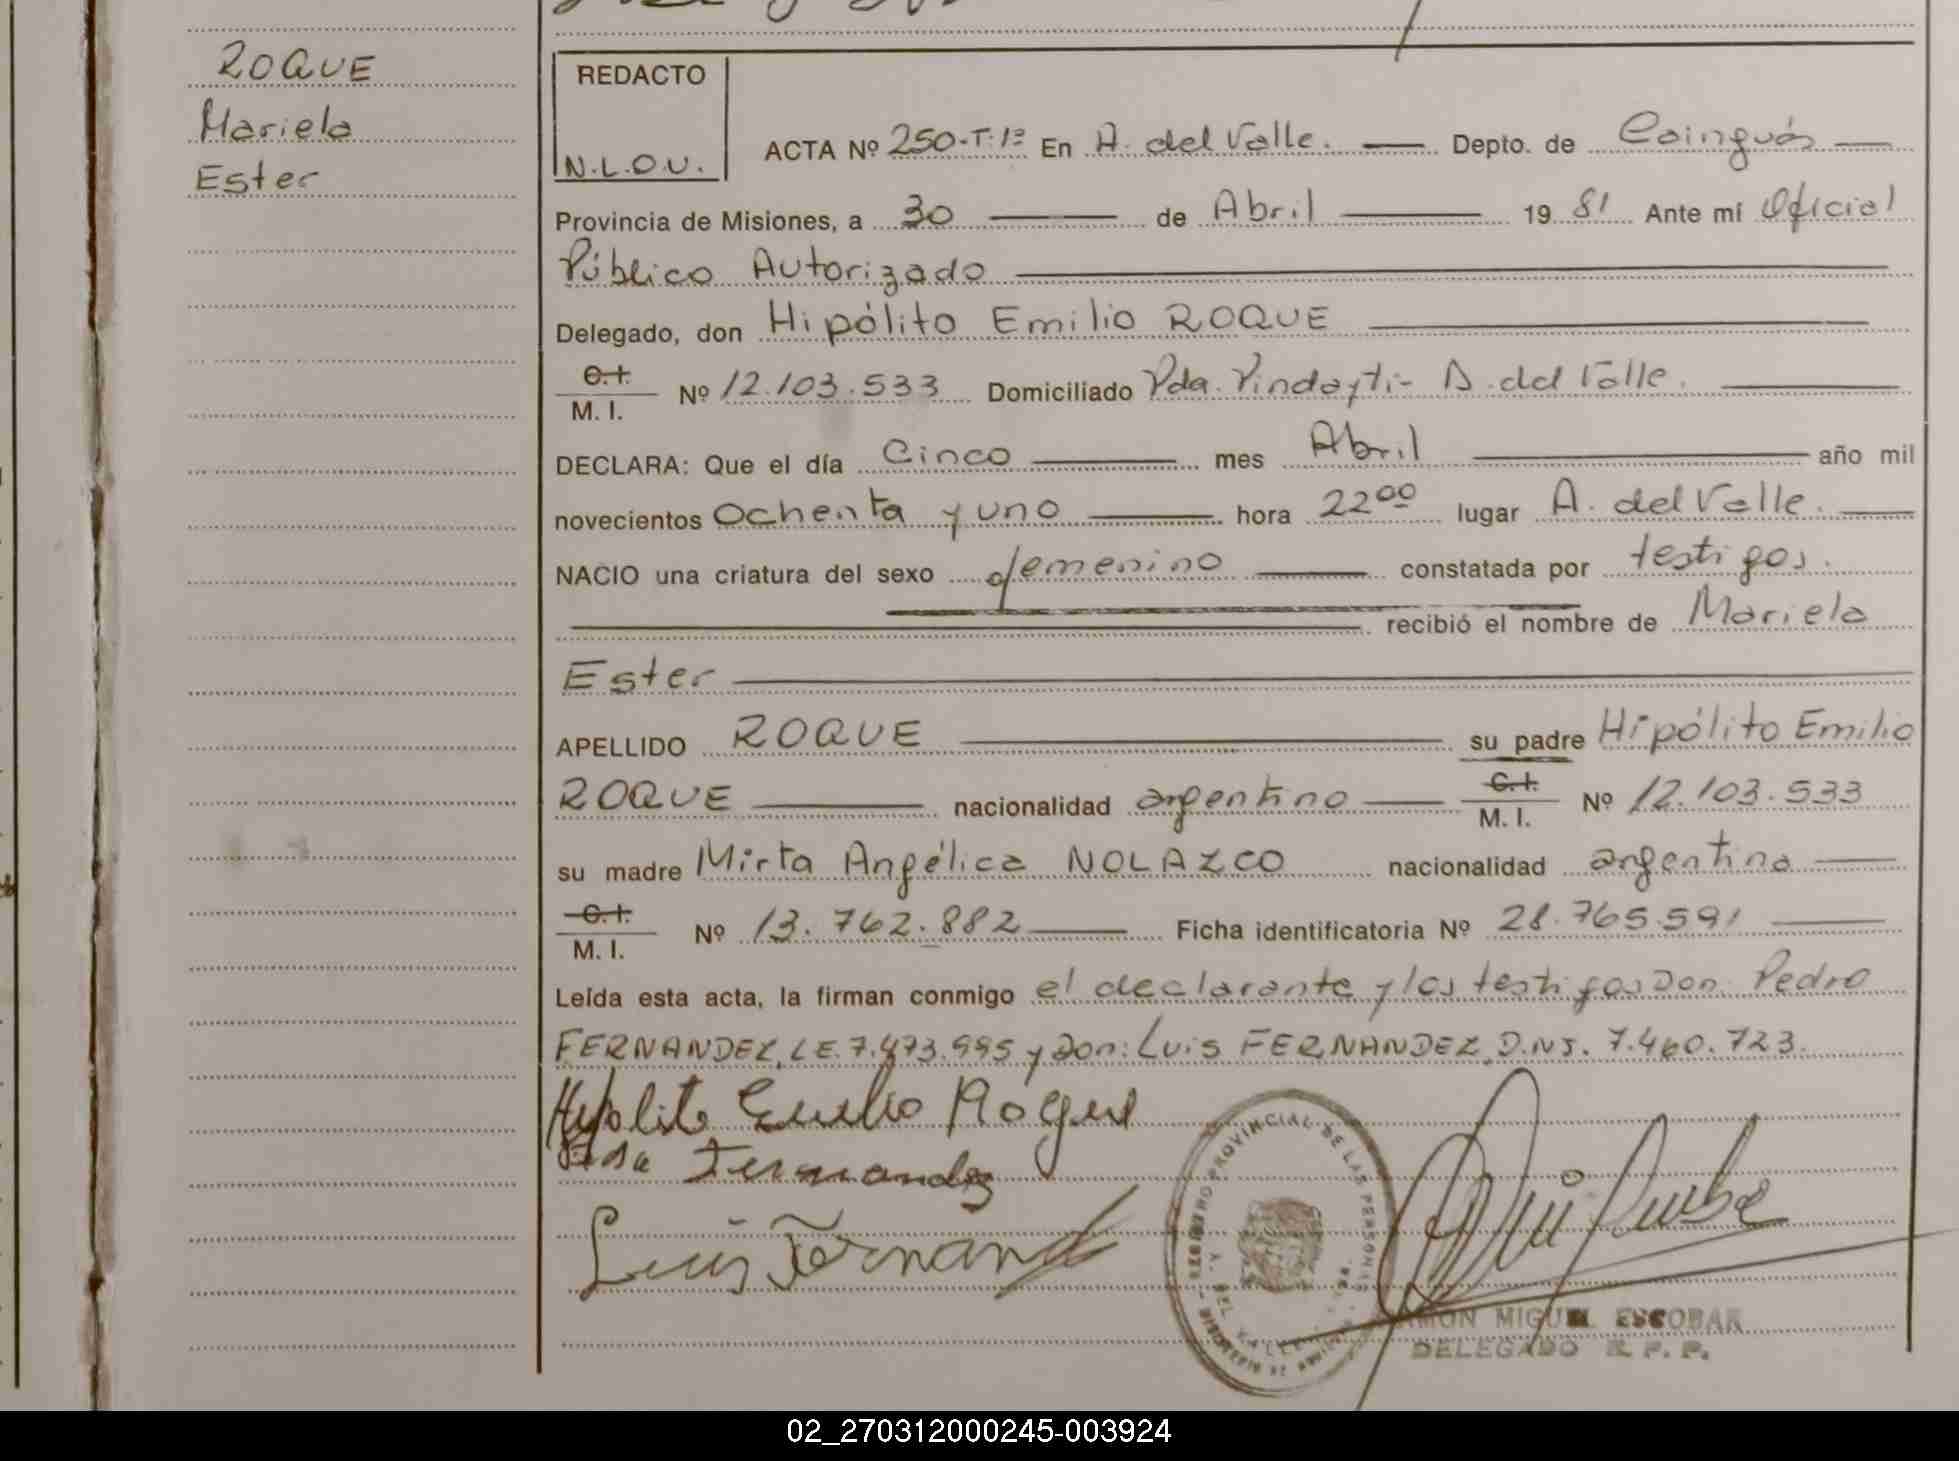 ROQUE
Mariela
Ester
REDACTO
N.L.O.U.
ACTA Nº 250-T.1º En A. del Valle. Depto. de Cainguás
Provincia de Misiones, a 30 de Abril 1981 Ante mí Oficial
Público Autorizado
Delegado, don Hipólito Emilio ROQUE
C.I.
M. I. Nº 12.103.533 Domiciliado Pda. Pindayti- A. del Valle.
DECLARA: Que el día Cinco mes Abril año mil
novecientos Ochenta y uno hora 22 00 lugar A. del Valle.
NACIO una criatura del sexo femenino constatada por testigos.
recibió el nombre de Mariela
Ester
APELLIDO ROQUE su padre Hipólito Emilio
ROQUE nacionalidad argentino C.I. M. I. Nº 12.103.533
su madre Mirta Angélica NOLAZCO nacionalidad argentina
C.I.
M. I. Nº 13.762.882 Ficha identificatoria Nº 28.765.591
Leída esta acta, la firman conmigo el declarante y los testigos Don: Pedro
FERNANDEZ, L.E. 7.473.995 y Don: Luis FERNANDEZ D.N.I. 7.460.723.
Hypolito Emilio Roque
Fernandez
Luis Fernand
REGISTRO PROVINCIAL DE LAS PERSONAS
A. DEL VALLE
MISIONES
RAMON MIGUEL ESCOBAR
DELEGADO R. P. P.
02_270312000245-003924